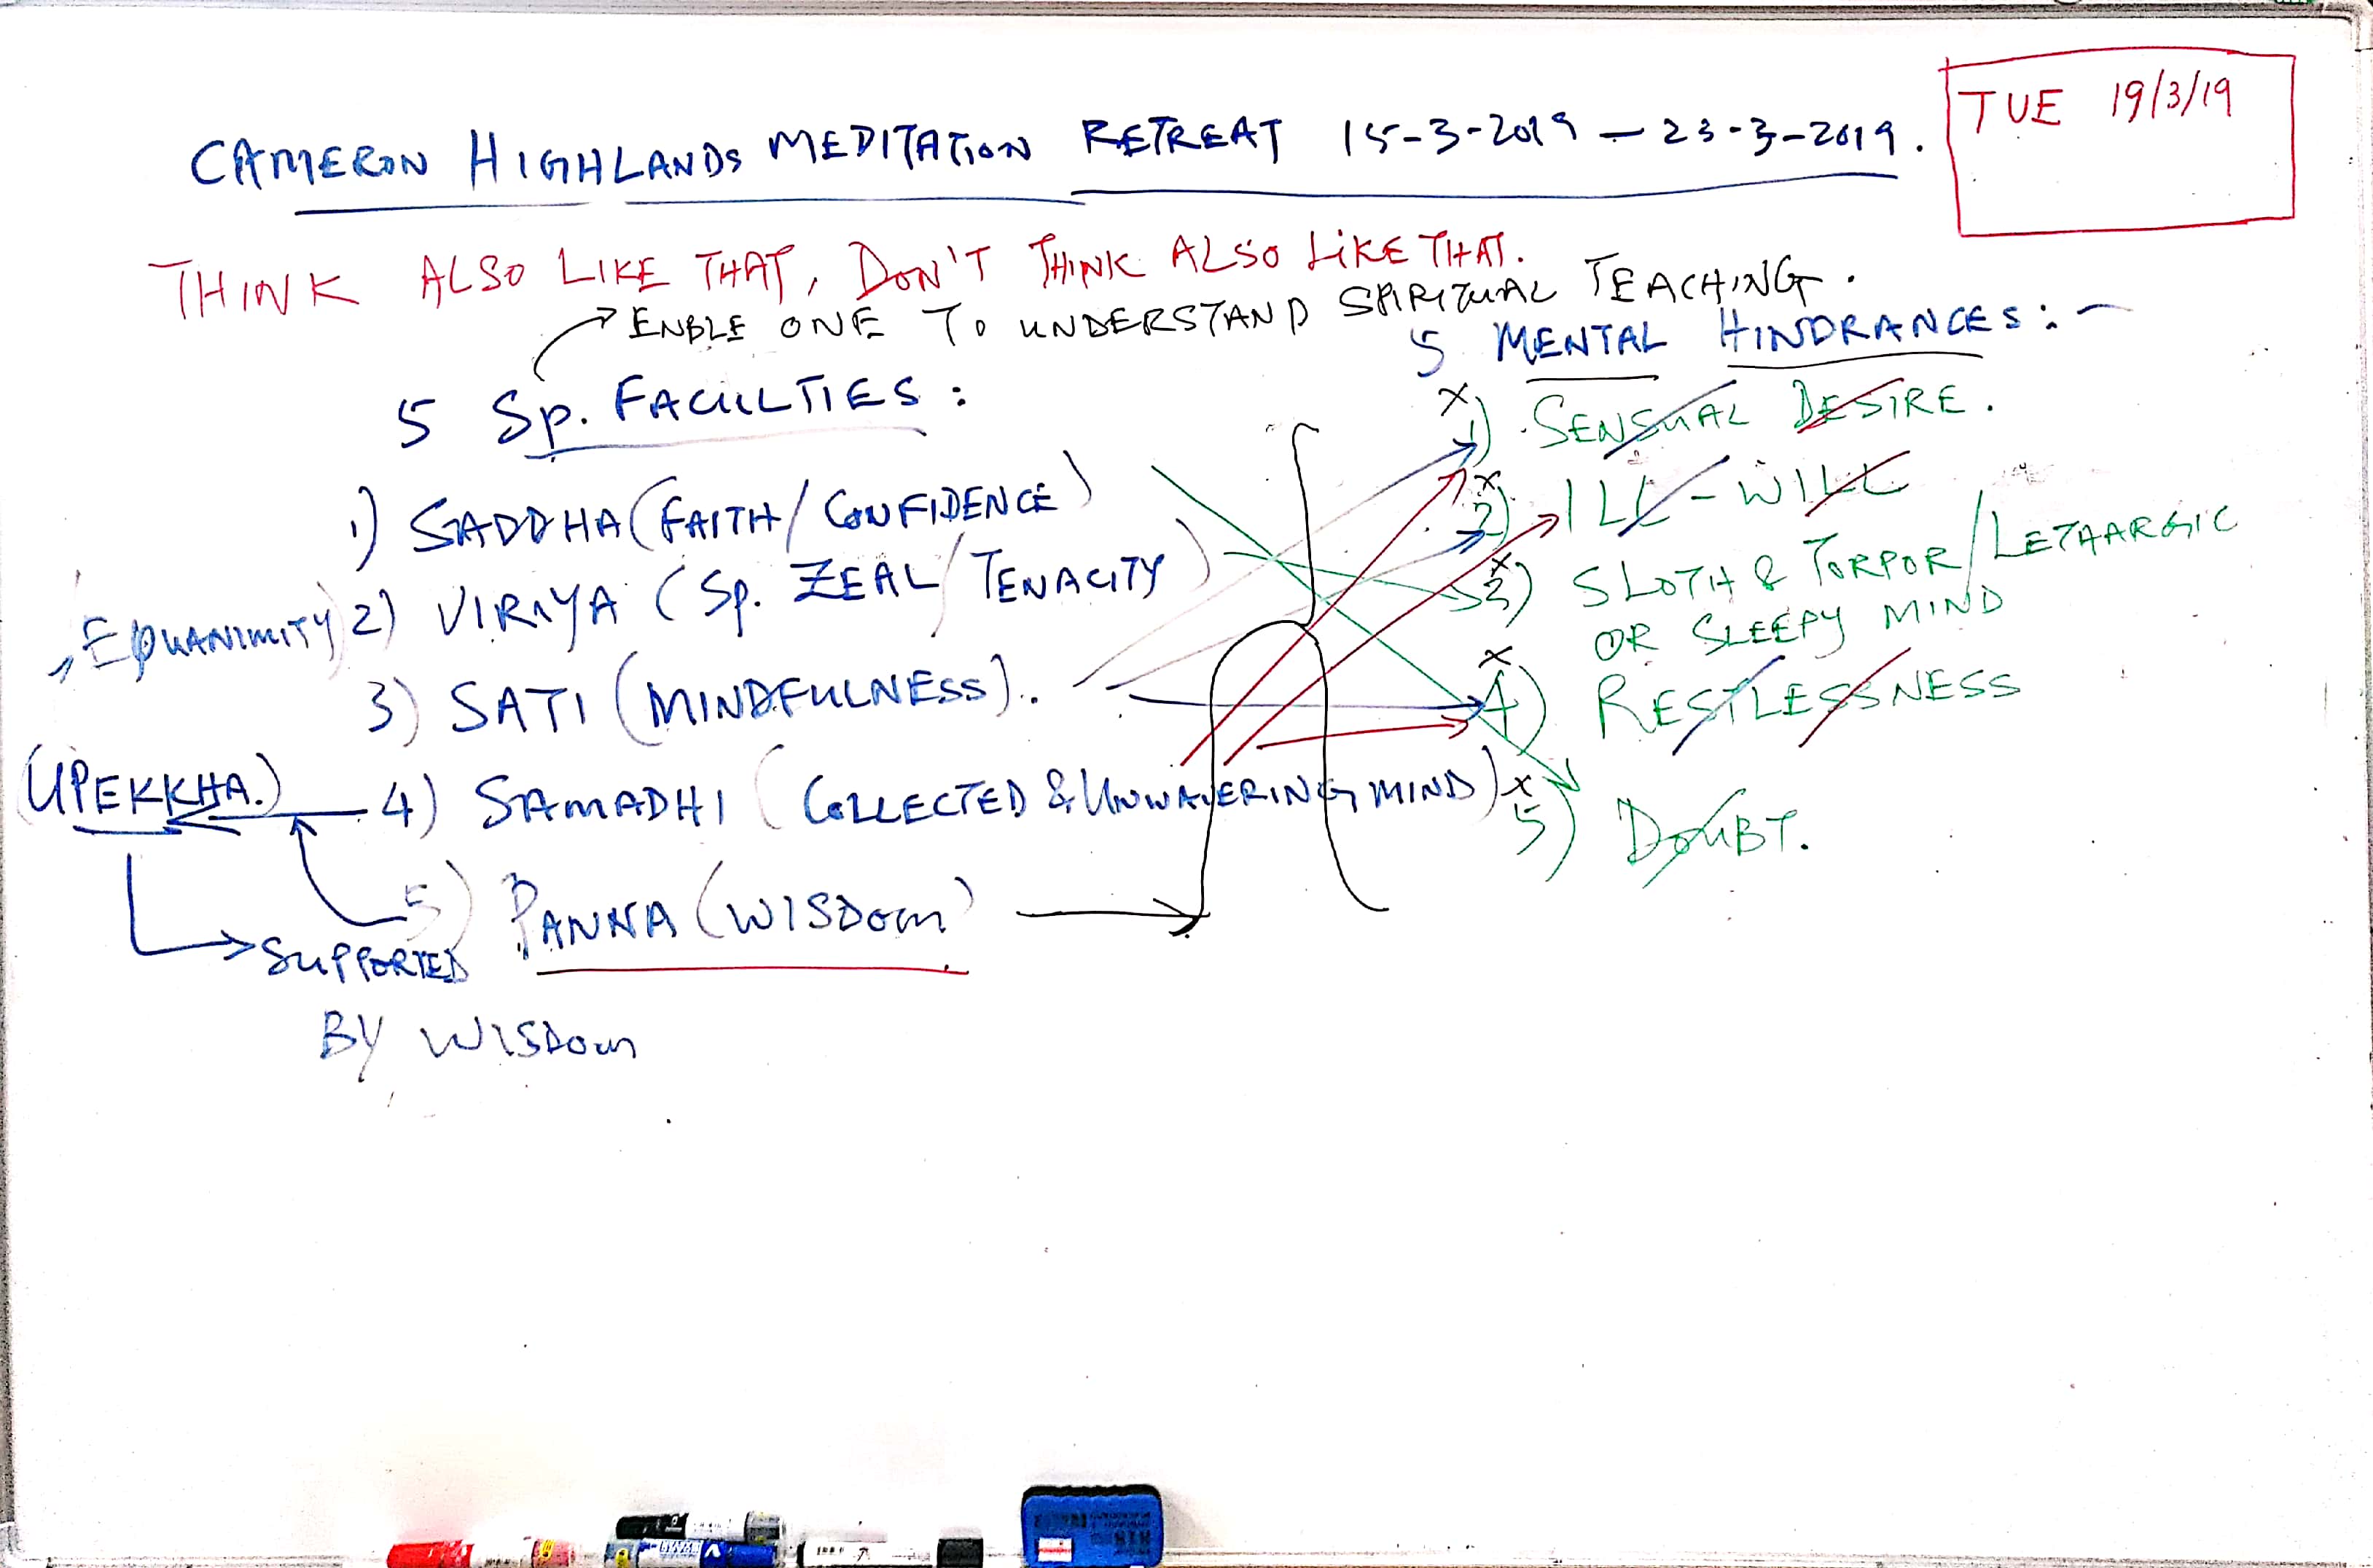 CAMERON HIGHLANDS MEDITATION RETREAT 15-3-2019 – 23-3-2019.
TUE 19/3/19
THINK ALSO LIKE THAT, DON'T THINK ALSO LIKE THAT.
ENBLE ONE TO UNDERSTAND SPIRITUAL TEACHING.
5 Sp. FACULTIES:
1) SADDHA (FAITH/CONFIDENCE)
2) VIRIYA (Sp. ZEAL/TENACITY)
3) SATI (MINDFULNESS).
4) SAMADHI (COLLECTED & UNWAVERING MIND)
5) PANNA (WISDOM)
EQUANIMITY
(UPEKKHA.)
SUPPORTED
BY WISDOM
5 MENTAL HINDRANCES:-
x 1) SENSUAL DESIRE.
x 2) ILL-WILL
x 3) SLOTH & TORPOR/LETHARGIC
OR SLEEPY MIND
x 4) RESTLESSNESS
x 5) DOUBT.